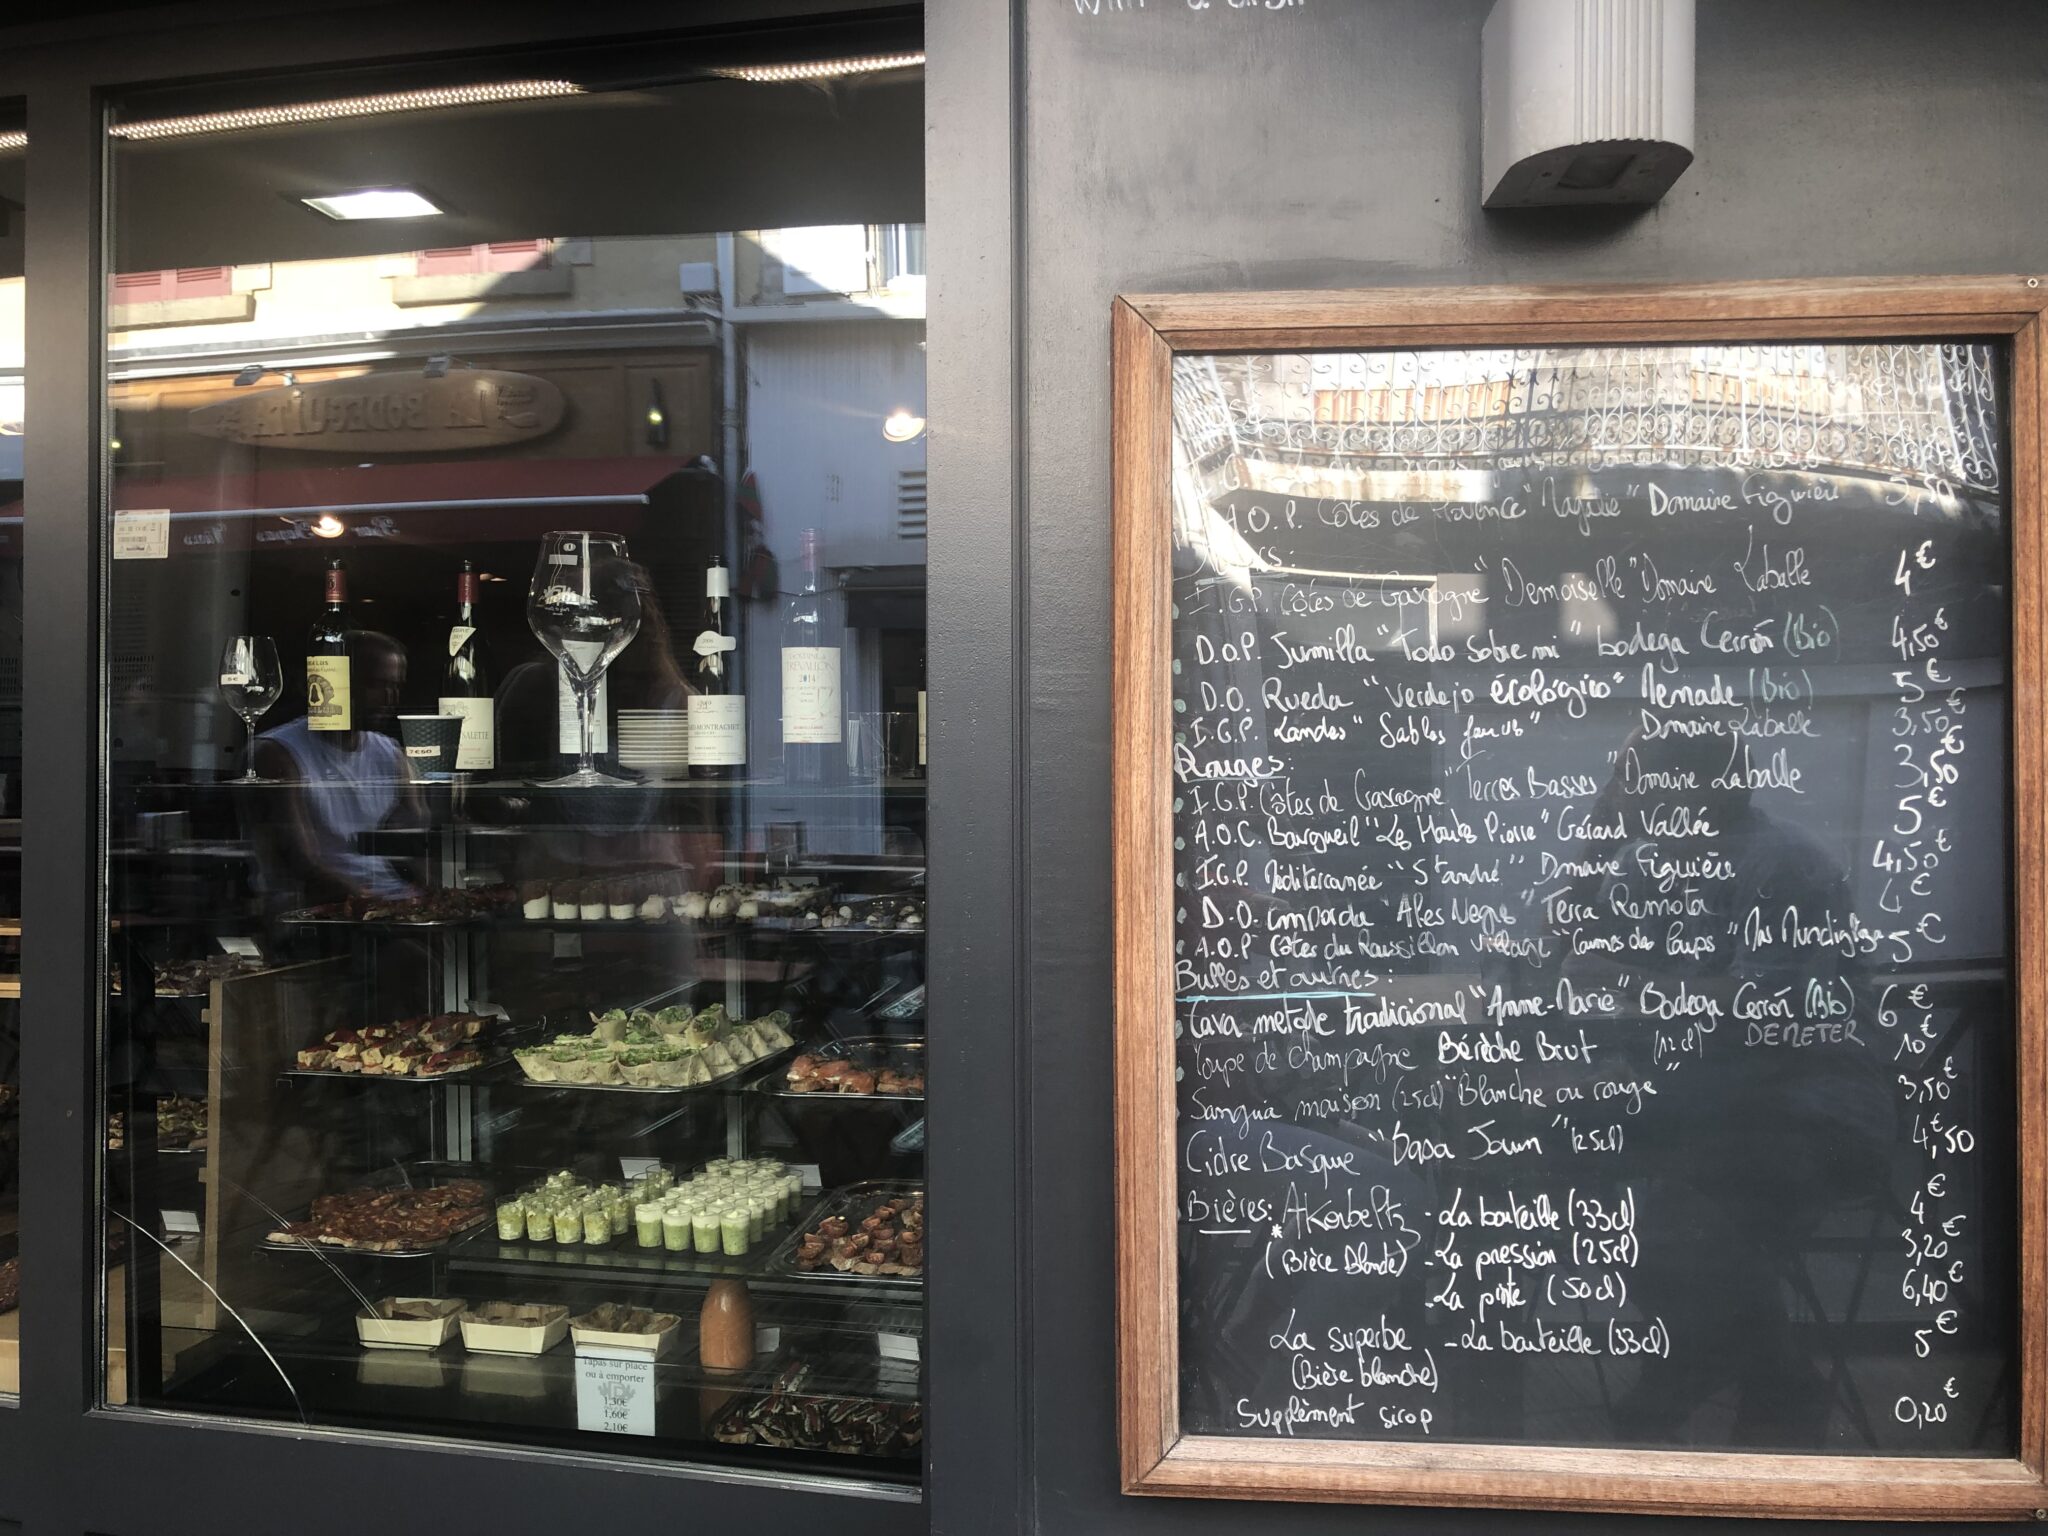 LA BODEGUITA
5€
7€50
SALETTE
MONTRACHET
TREVALLON
2014
Tapas sur place
ou à emporter
1,30€
1,60€
2,10€
A.O.P. Côtes de Provence " Domaine Figuière 3,50
I.G.P. Côtes de Gascogne "Demoiselle" Domaine Laballe 4€
D.O.P. Jumilla "Todo Sobre mi" bodega Cerrón (Bio) 4,50€
D.O. Rueda "Verdejo écológico" Menade (Bio) 5€
I.G.P. Landes "Sables fauves" Domaine Laballe 3,50€
Rouges:
I.G.P. Côtes de Gascogne "Terres Basses" Domaine Laballe 3,50€
A.O.C. Bourgueil "Les Hautes Pierre" Gérand Vallée 5€
I.G.P. Méditerranée "St André" Domaine Figuière 4,50€
D.O. Emporda Terra Remota 4€
A.O.P Côtes du Roussillon Village Mas Mundigliza 5€
Bulles et autres:
Cava metode tradicional "Anne-Marie" Bodega Cerrón (Bio) 6€
DEMETER
Coupe de Champagne Bérèche Brut (12cl) 10€
Sangria maison (25cl) "Blanche ou rouge" 3,50€
Cidre Basque (25cl) 4,50€
Bières: Akerbeltz - La bouteille (33cl) 4€
* (Bière blonde) - La pression (25cl) 3,20€
- La pinte (50cl) 6,40€
La superbe - La bouteille (33cl) 5€
(Bière blanche)
Supplèment sirop 0,20€